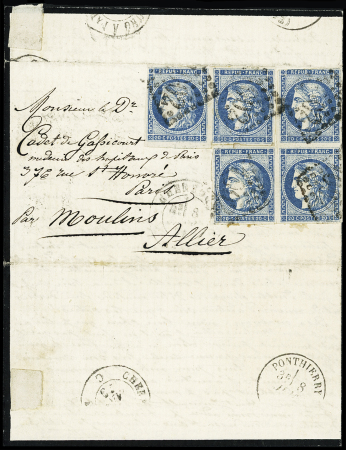 REPUB FRANC
REPUB FRANC
REPUB FRANC
20 C POSTES 20 C
20 C POSTES 20 C
20 C POSTES 20 C
REPUB FRANC
REPUB FRANC
20 C POSTES 20 C
20 C POSTES 20 C
Monsieur le Dr
Cadet de Gassicourt
médecin des hopitaux de Paris
376 rue St Honoré
Paris
Par Moulins
Allier
PONTHIERRY
8